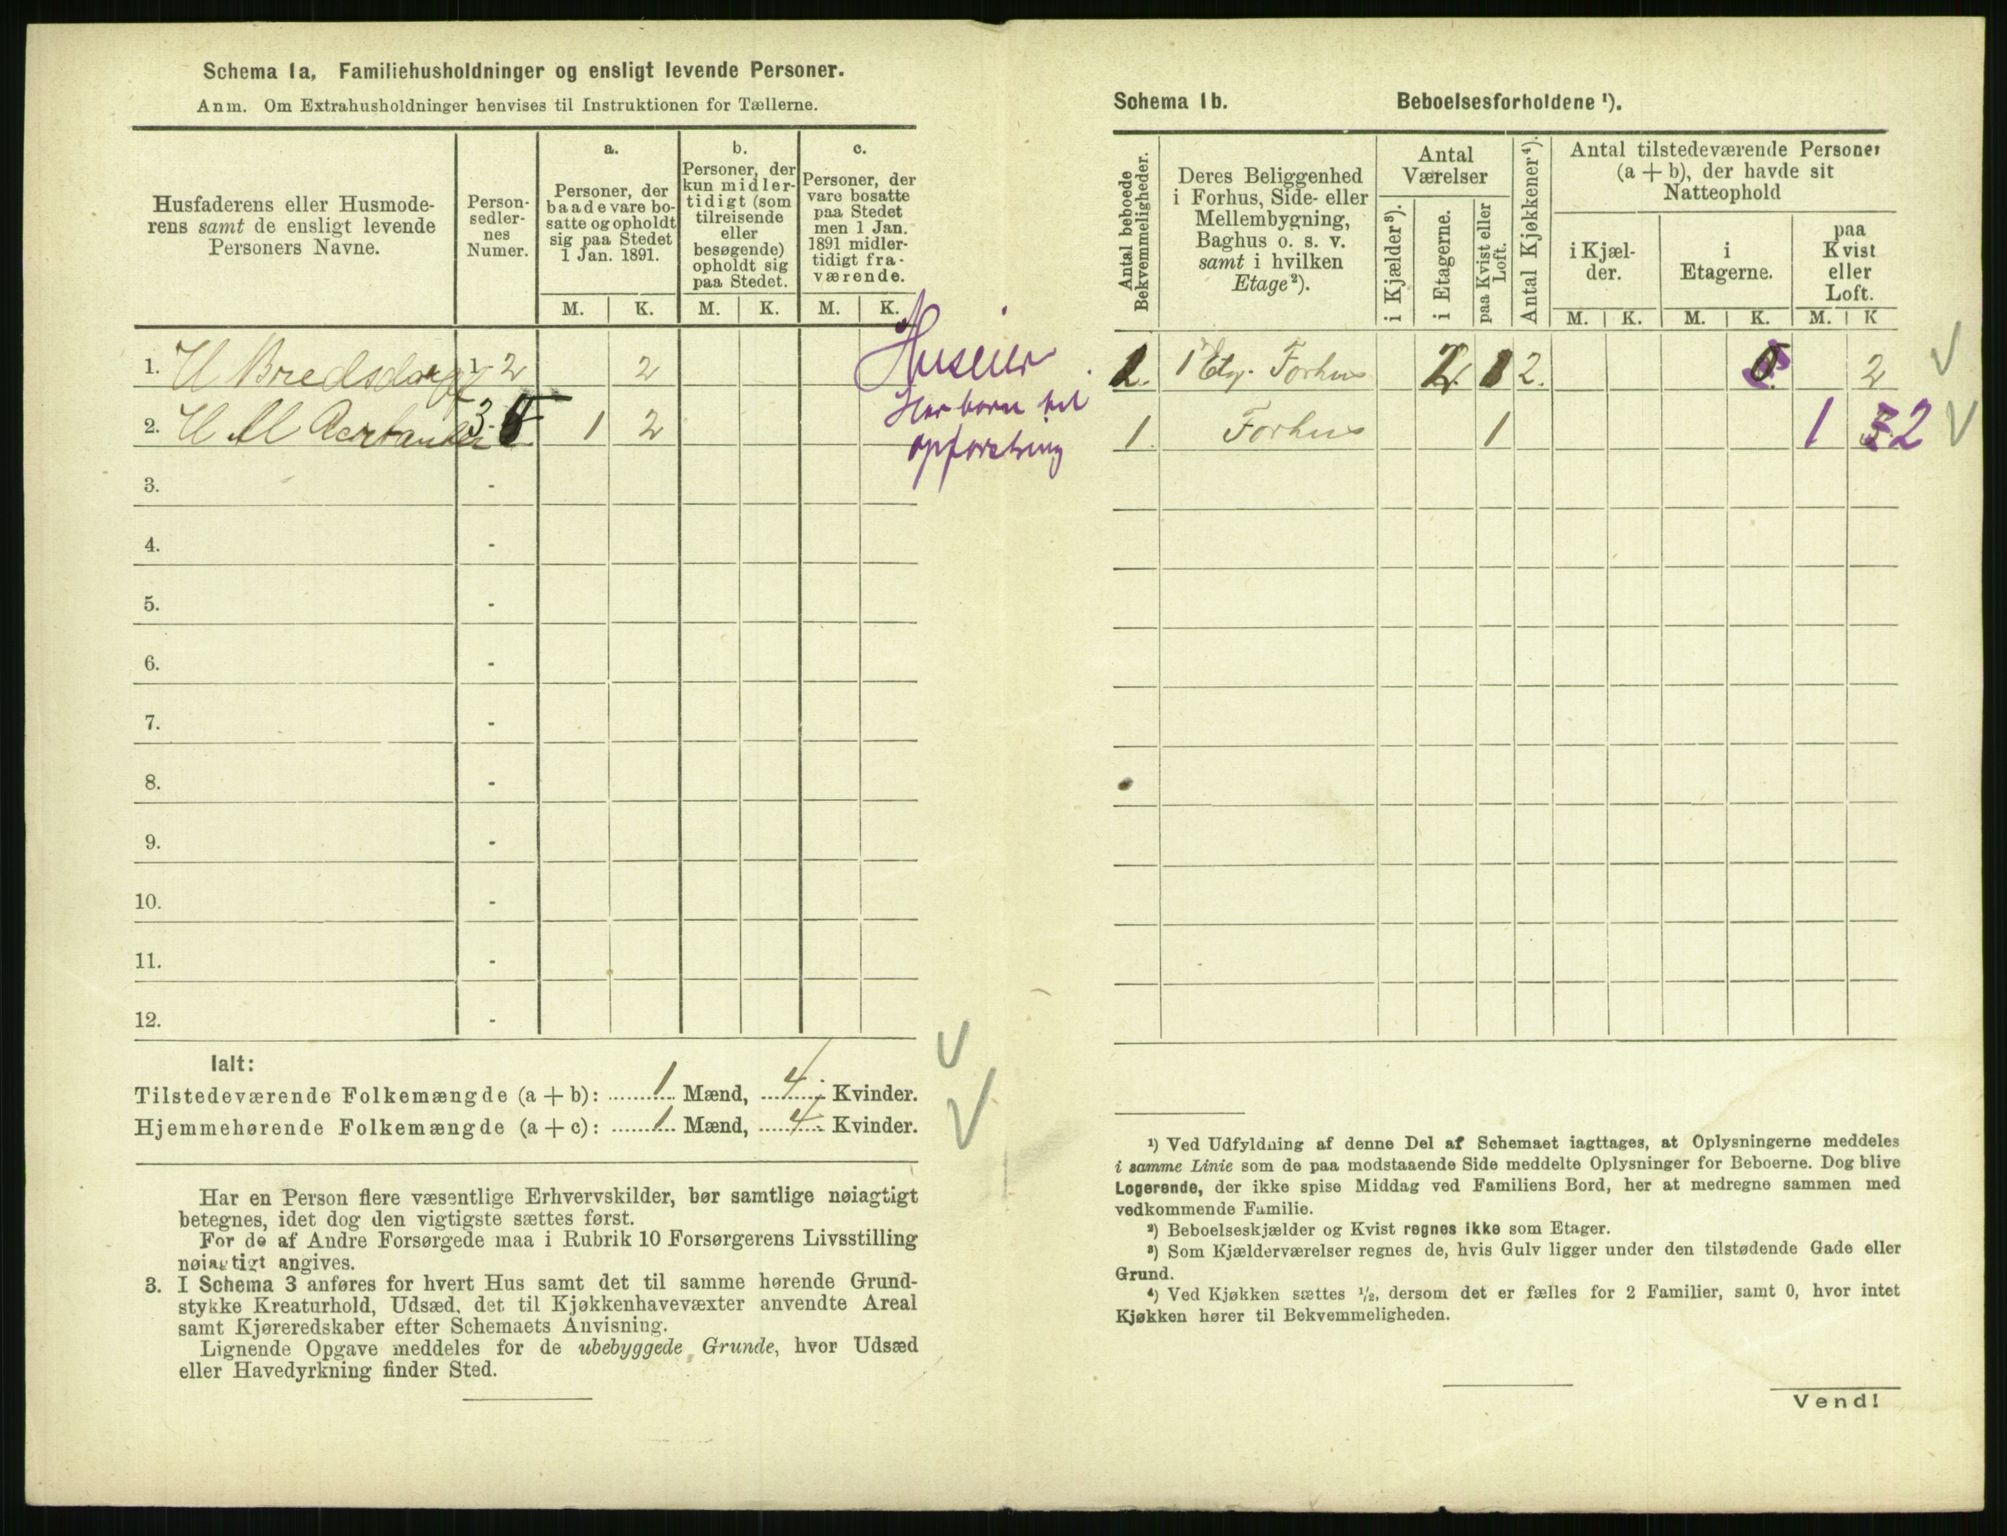 Schema 1a, Familiehusholdninger og ensligt levende Personer.
Anm. Om Extrahusholdninger henvises til Instruktionen for Tællerne.
Husfaderens eller Husmode-
rens samt de ensligt levende
Personers Navne.
Person-
sedler-
nes
Numer.
a.
Personer, der
baade vare bo-
satte og opholdt
sig paa Stedet
1 Jan. 1891.
b.
Personer, der
kun midler-
tidigt (som
tilreisende
eller
besøgende)
opholdt sig
paa Stedet.
c.
Personer, der
vare bosatte
paa Stedet
men 1 Jan.
1891 midler-
tidigt fra-
værende.
M. K. M. K. M. K.
1. H Bredsdorff 1 2 2
2. 3 - 5 1 2
Huseier
Har barn til
opfostring
3. -
4. -
5. -
6. -
7. -
8. -
9. -
10. -
11. -
12. -
Ialt:
Tilstedeværende Folkemængde (a + b): 1 Mænd, 4 Kvinder.
Hjemmehørende Folkemængde (a + c): 1 Mænd, 4 Kvinder.
Har en Person flere væsentlige Erhvervskilder, bør samtlige nøiagtigt
betegnes, idet dog den vigtigste sættes først.
For de af Andre Forsørgede maa i Rubrik 10 Forsørgerens Livsstilling
nøiagtigt angives.
3. I Schema 3 anføres for hvert Hus samt det til samme hørende Grund-
stykke Kreaturhold, Udsæd, det til Kjøkkenhavevæxter anvendte Areal
samt Kjøreredskaber efter Schemaets Anvisning.
Lignende Opgave meddeles for de ubebyggede Grunde, hvor Udsæd
eller Havedyrkning finder Sted.
Schema 1b. Beboelsesforholdene ¹).
Antal beboede
Bekvemmeligheder.
Deres Beliggenhed
i Forhus, Side- eller
Mellembygning,
Baghus o. s. v.
samt i hvilken
Etage ²).
Antal
Værelser
i Kjælder ³).
i Etagerne.
paa Kvist eller
Loft.
Antal Kjøkkener ⁴).
Antal tilstedeværende Personer
(a + b), der havde sit
Natteophold
i Kjæl-
der.
i
Etagerne.
paa
Kvist
eller
Loft.
M. K. M. K. M. K
1. 1 Etg. Forhus 2. 1 2. 2
1. Forhus 1 1 2
¹) Ved Udfyldning af denne Del af Schemaet iagttages, at Oplysningerne meddeles
i samme Linie som de paa modstaaende Side meddelte Oplysninger for Beboerne. Dog blive
Logerende, der ikke spise Middag ved Familiens Bord, her at medregne sammen med
vedkommende Familie.
²) Beboelseskjælder og Kvist regnes ikke som Etager.
³) Som Kjælderværelser regnes de, hvis Gulv ligger under den tilstødende Gade eller
Grund.
⁴) Ved Kjøkken sættes ½, dersom det er fælles for 2 Familier, samt 0, hvor intet
Kjøkken hører til Bekvemmeligheden.
Vend!